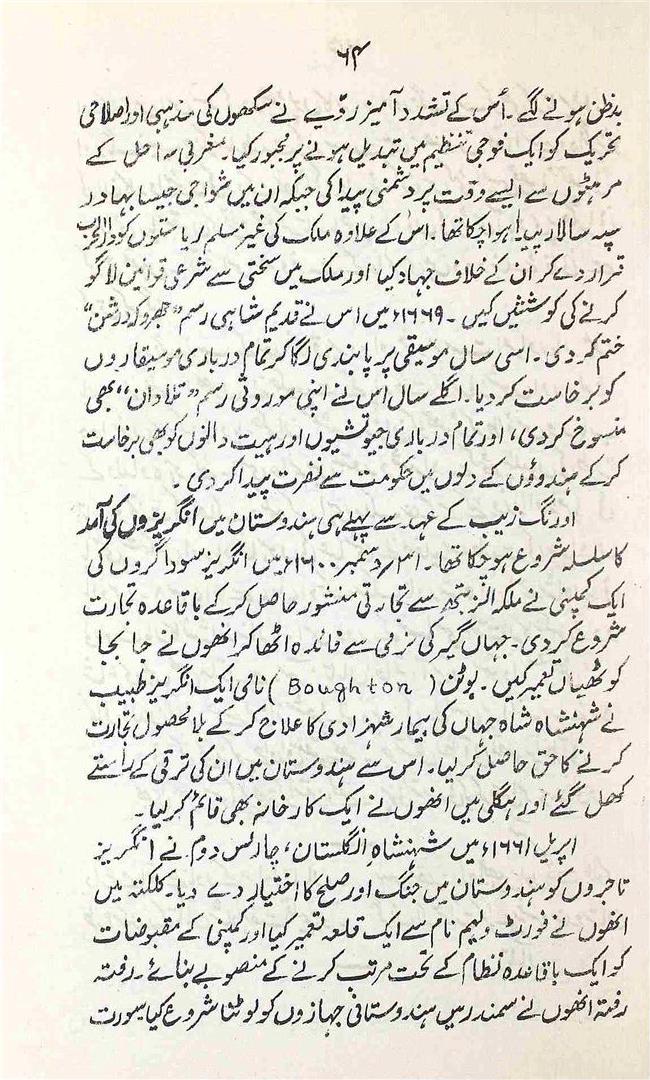 ۶۴
بدظن ہونے لگے۔ اُس کے تشدد آمیز روّیے نے سکھوں کی مذہبی اور اصلاحی
تحریک کو ایک فوجی تنظیم میں تبدیل ہونے پر مجبور کیا۔ مغربی ساحل کے
مرہٹوں سے ایسے وقت پر دشمنی پیدا کی جبکہ ان میں شواجی جیسا بہادر
سپہ سالار پیدا ہوا چکا تھا۔ اس کے علاوہ ملک کی غیر مسلم ریاستوں کو دارالحرب
قرار دے کر ان کے خلاف جہاد کیا اور ملک میں سختی سے شرعی قوانین لاگو
کرنے کی کوششیں کیں۔ ۱۶۶۹ء میں اس نے قدیم شاہی رسم ”جھروکہ درشن“
ختم کردی۔ اسی سال موسیقی پر پابندی لگا کر تمام درباری موسیقاروں
کو برخاست کر دیا۔ اگلے سال اس نے اپنی موروثی رسم ”تلادان“ بھی
منسوخ کردی، اور تمام درباری جیوتشیوں اور ہیت دانوں کو بھی برخاست
کر کے ہندوؤں کے دلوں میں حکومت سے نفرت پیدا کردی۔
اورنگ زیب کے عہد سے پہلے ہی ہندوستان میں انگریزوں کی آمد
کا سلسلہ شروع ہو چکا تھا۔ ۳۱؍ دسمبر ۱۶۰۰ء میں انگریز سوداگروں کی
ایک کمپنی نے ملکہ الزبتھ سے تجارتی منشور حاصل کر کے باقاعدہ تجارت
شروع کردی۔ جہاں گیر کی نرمی سے فائدہ اٹھا کر انھوں نے جا بجا
کوٹھیاں تعمیر کیں۔ بوٹن (Boughton) نامی ایک انگریز طبیب
نے شہنشاہ شاہ جہاں کی بیمار شہزادی کا علاج کر کے بلا محصول تجارت
کرنے کا حق حاصل کر لیا۔ اس سے ہندوستان میں ان کی ترقی کے راستے
کھل گئے اور ہگلی میں انھوں نے ایک کارخانہ بھی قائم کر لیا۔
اپریل ۱۶۶۱ء میں شہنشاہِ انگلستان، چارلس دوم نے انگریز
تاجروں کو ہندوستان میں جنگ اور صلح کا اختیار دے دیا۔ کلکتہ میں
انھوں نے فورٹ ولیم نام سے ایک قلعہ تعمیر کیا اور کمپنی کے مقبوضات
کو ایک باقاعدہ نظام کے تحت مرتب کرنے کے منصوبے بنائے۔ رفتہ
رفتہ انھوں نے سمندر میں ہندوستانی جہازوں کو لوٹنا شروع کیا سورت